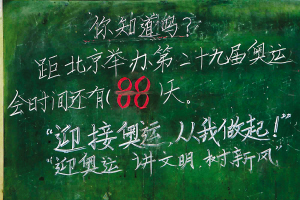 你知道吗?
距北京举办第二十九届奥运
会时间还有(88)天。
“迎接奥运,从我做起!”
“迎奥运 讲文明 树新风”